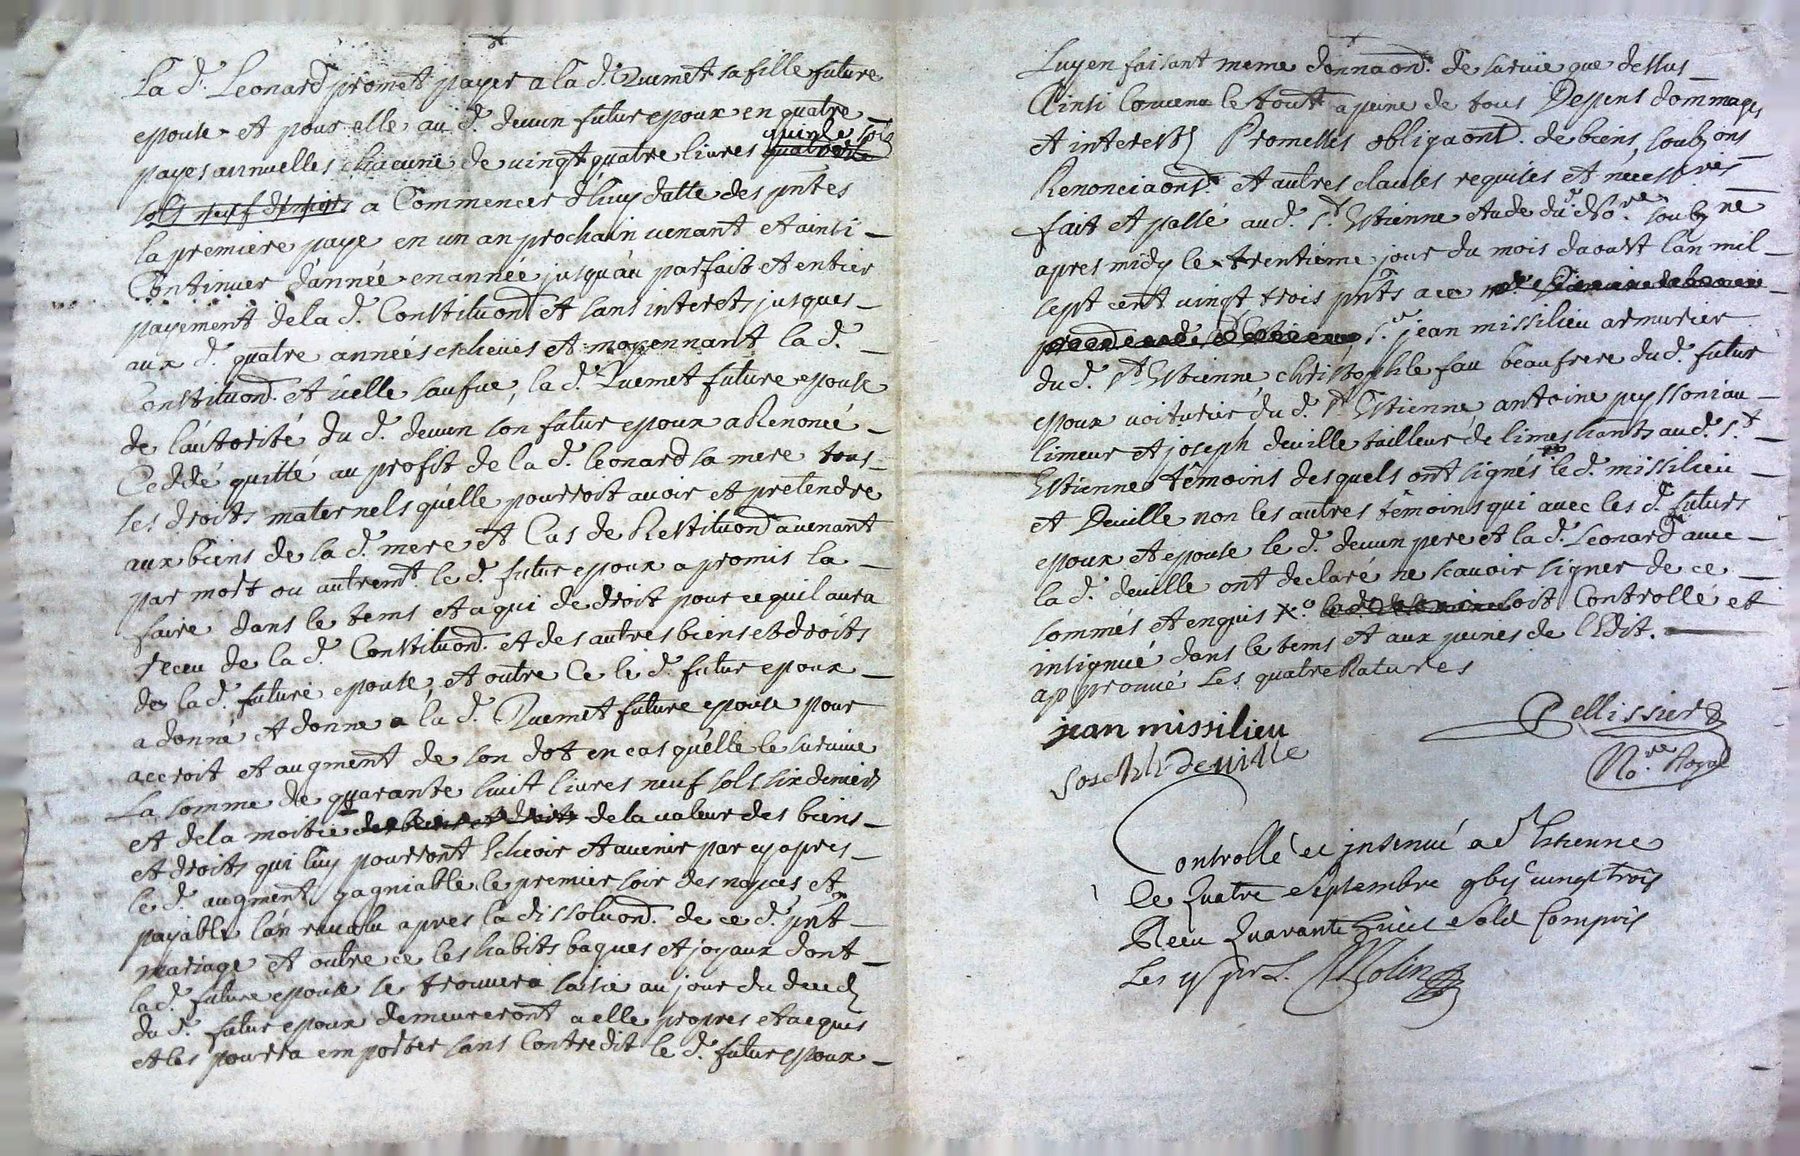 La d. Leonard promet payer a la d. Quemet sa fille future
epouse et pour elle au d. deuun futur epoux en quatre
payes annuelles chacune de vingt quatre livres quinze sols
sols neuf deniers a Commencer d'huy datte des pntes
la premiere paye en un an prochain venant et ainsi
Continuer d'année en année jusqu'au parfait et entier
payement de la d. Constituon et sans interets jusques
aux d. quatre années escheues et moyennant la d.
Constituon. et icelle saufue, la d. Quemet future epouse
de l'autorité du d. deuun son futur epoux a Renoncé
Ceddé quitté au profit de la d. leonard sa mere tous
les droits maternels qu'elle pourroit avoir et pretendre
aux biens de la d. mere et Cas de Restituon avenant
par mort ou autremt. le d. futur epoux a promis la
faire dans le tems et a qui de droit pour ce quil aura
receu de la d. Constituon. et des autres biens et droits
de la d. future epouse, et outre Ce le d. futur epoux
a donné et donne a la d. Quemet future epouse pour
accroit et augment de son dot en cas qu'elle le survive
La somme de quarante huit livres neuf sols six deniers
et de la moitié de la valeur des biens
et droits qui luy pourront Echeoir et avenir par cy apres
le d. augment gagniable le premier soir des nopces et
payable l'an revolu apres la dissoluon. de ce d. pnt
mariage et outre ce les habits bagues et joyaux dont
la d. future epouse se trouvera saisie au jour du deceds
du d. futur epoux demeureront a elle propres et acquis
et les pourra emporter sans Contredit le d. futur epoux
Luy en faisant meme donnaon. de survie que dessus
Ainsi Convenu le tout a peine de tous Depens dommages
et interests Promesses obligaons. de biens, soubmons
Renonciaons. et autres clauses requises et necessres
fait et passé au d. St Estienne etude du d. Nore. soubne
apres midy le trentieme jour du mois daoust l'an mil
sept cent vingt trois pnts
Sr. jean missilieu armurier
du d. St Estienne christophle fau beaufrere du d. futur
epoux voiturier du d. St Estienne antoine peyssoniau
limeur et joseph deville tailleur de limes hants au d. St
Estienne temoins desquels ont signés le d. missilieu
et Deville non les autres temoins qui avec les d. futurs
epoux et epouse le d. deuun pere et la d. Leonard avec
la d. deville ont declaré ne scavoir signer de ce
sommés et enquis soit Controllé et
insignué dans le tems et aux peines de l'Edit.
approuvé Les quatre Ratures
jean missilieu
Joseph deville
Pellissier
Nore. Royal
Controllé et insinué a St Etienne
le Quatre Septembre vingt trois
Receu Quarante huit Sols Compris
Les Molin